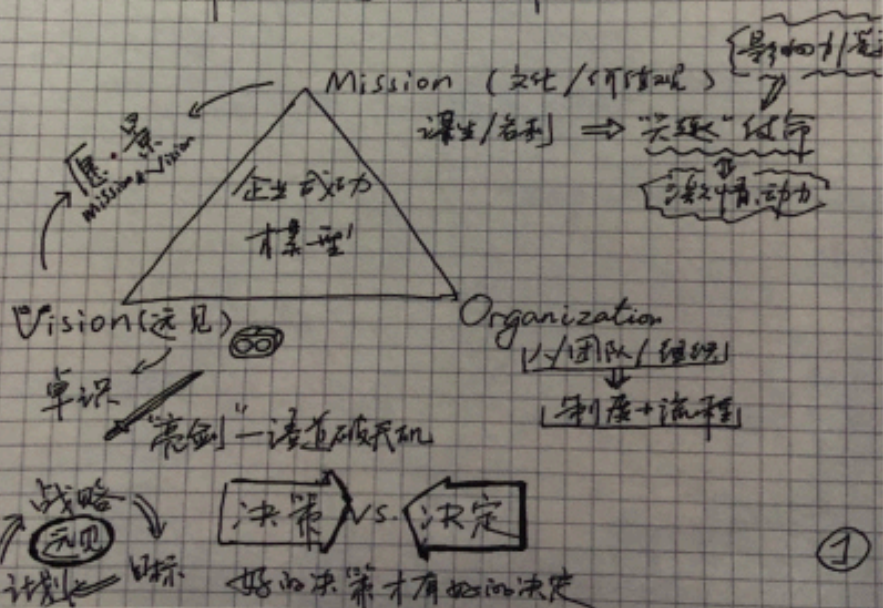 影响力
Mission (文化/价值观)
谋生/名利 ⇒ "兴趣"使命
激情.动力
愿·景
Mission & Vision
企业成功
模型
Vision(远见)
Organization
人/团队/组织
制度+流程
卓识
"亮剑"一语道破天机
战略
远见
计划
目标
决策 VS. 决定
好的决策才有好的决定
1